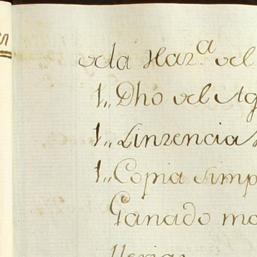 de la Haz.ª del
1,, Dho del Ag
1,, Linzencia
1,, Copia simp
Ganado ma